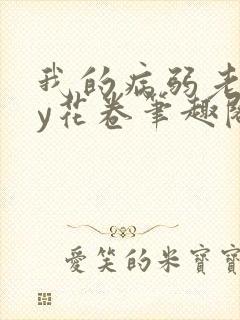 我的病弱老
y花卷笔趣阁
愛笑的米寶寶